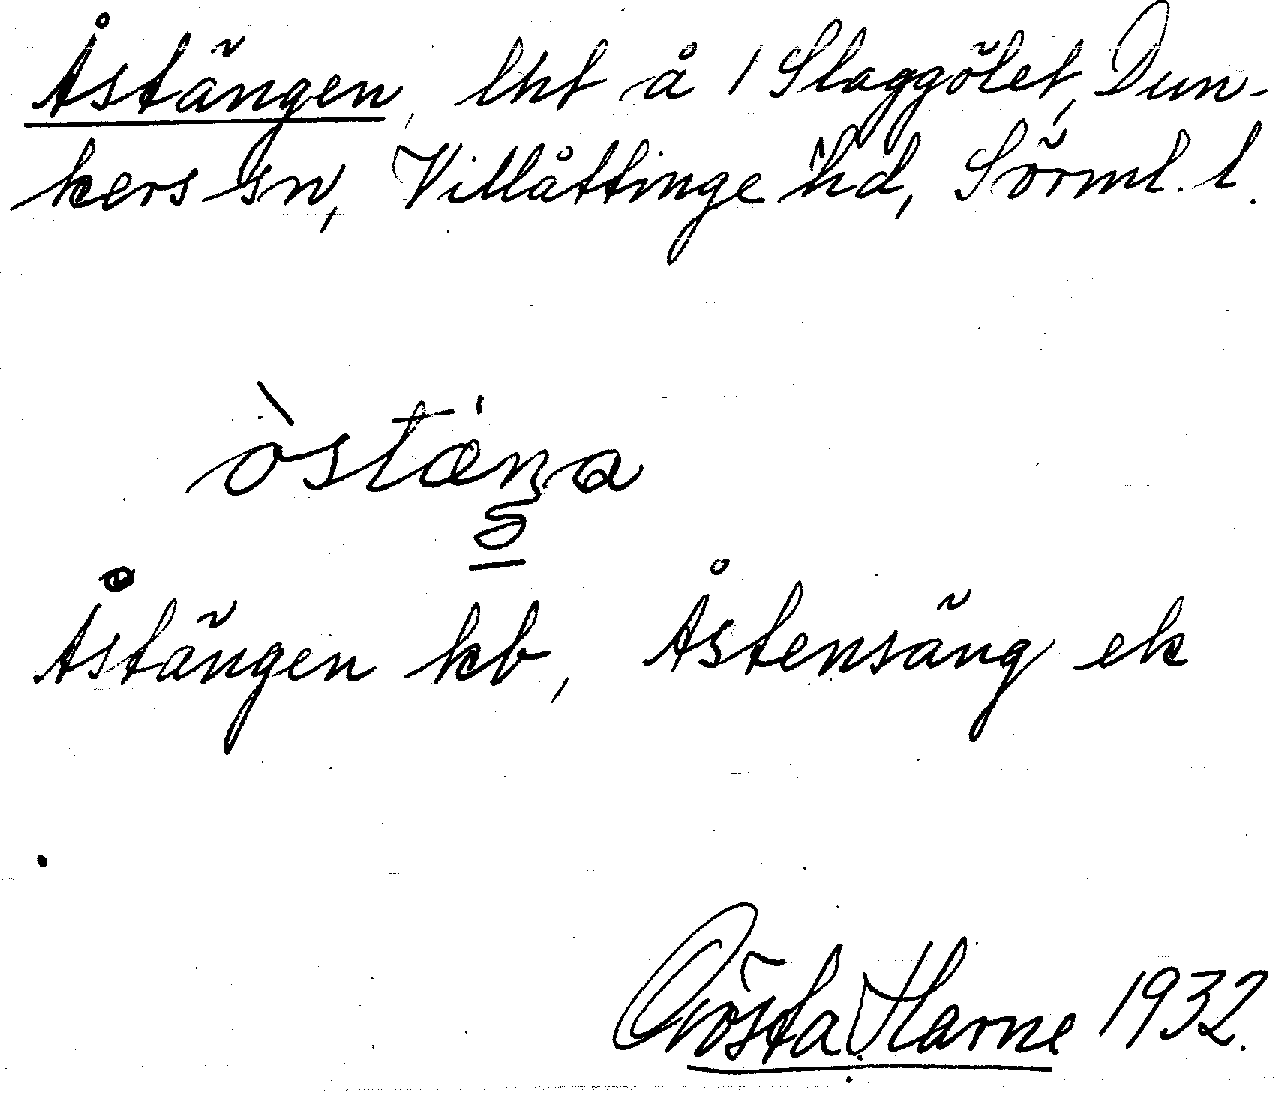 Åstängen, lht å 1 Slaggölet, Dun-
kers sn, Villåttinge hd, Sörml. l.
Åstängen kb, Åstensäng ek
Gösta Harne 1932.